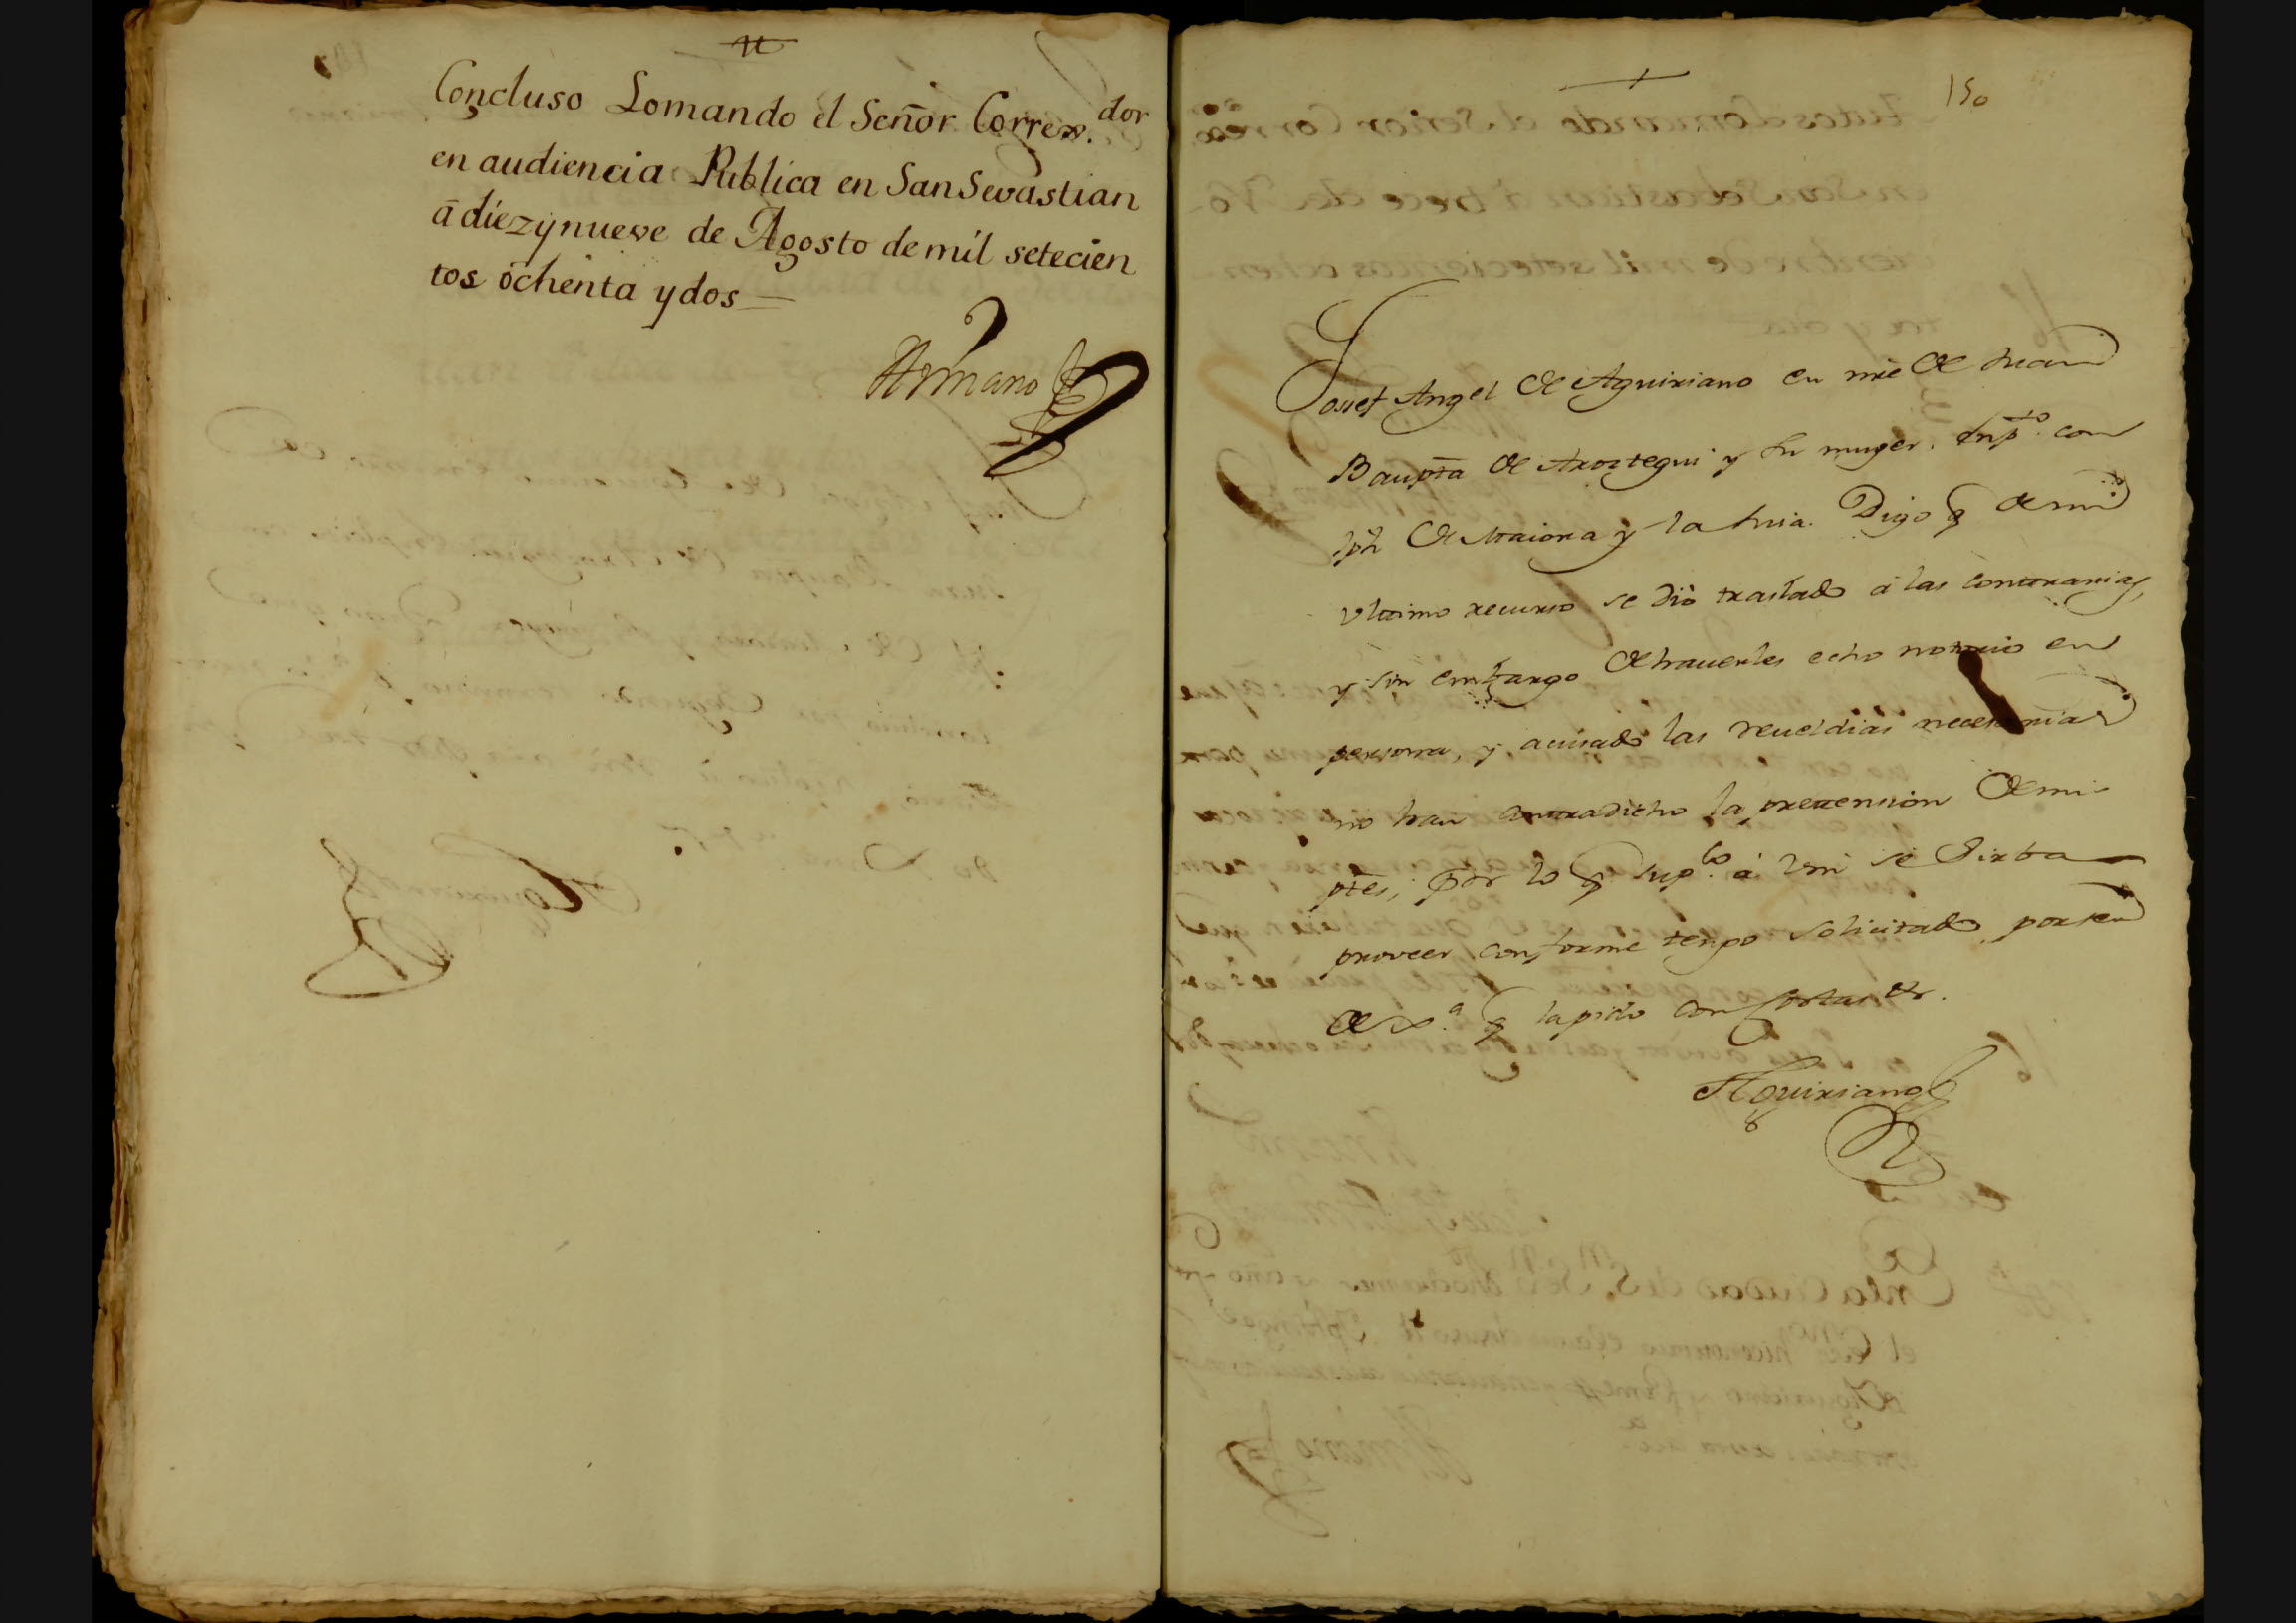 Concluso Lomando el Señor Correx.dor
en audiencia Publica en San Sevastian
a diez y nueve de Agosto de mil setecien
tos ochenta y dos
150
Josef Angel de Aguiriano en nre de Juan
Baupta de Aroztegui y su muger. en pto. con
Jph de y la suia. Digo q de mi
ultimo recurso se dió traslado á las contrarias,
y sin embargo de haverles echo notorio en
persona, y acusado las reveldias necesarias
no han contradicho la pretension de mi
ptes, por lo q supco. á Vm se sirba
proveer conforme tengo solicitado por ser
de xa. q la pido con costas &.
Aguiriano